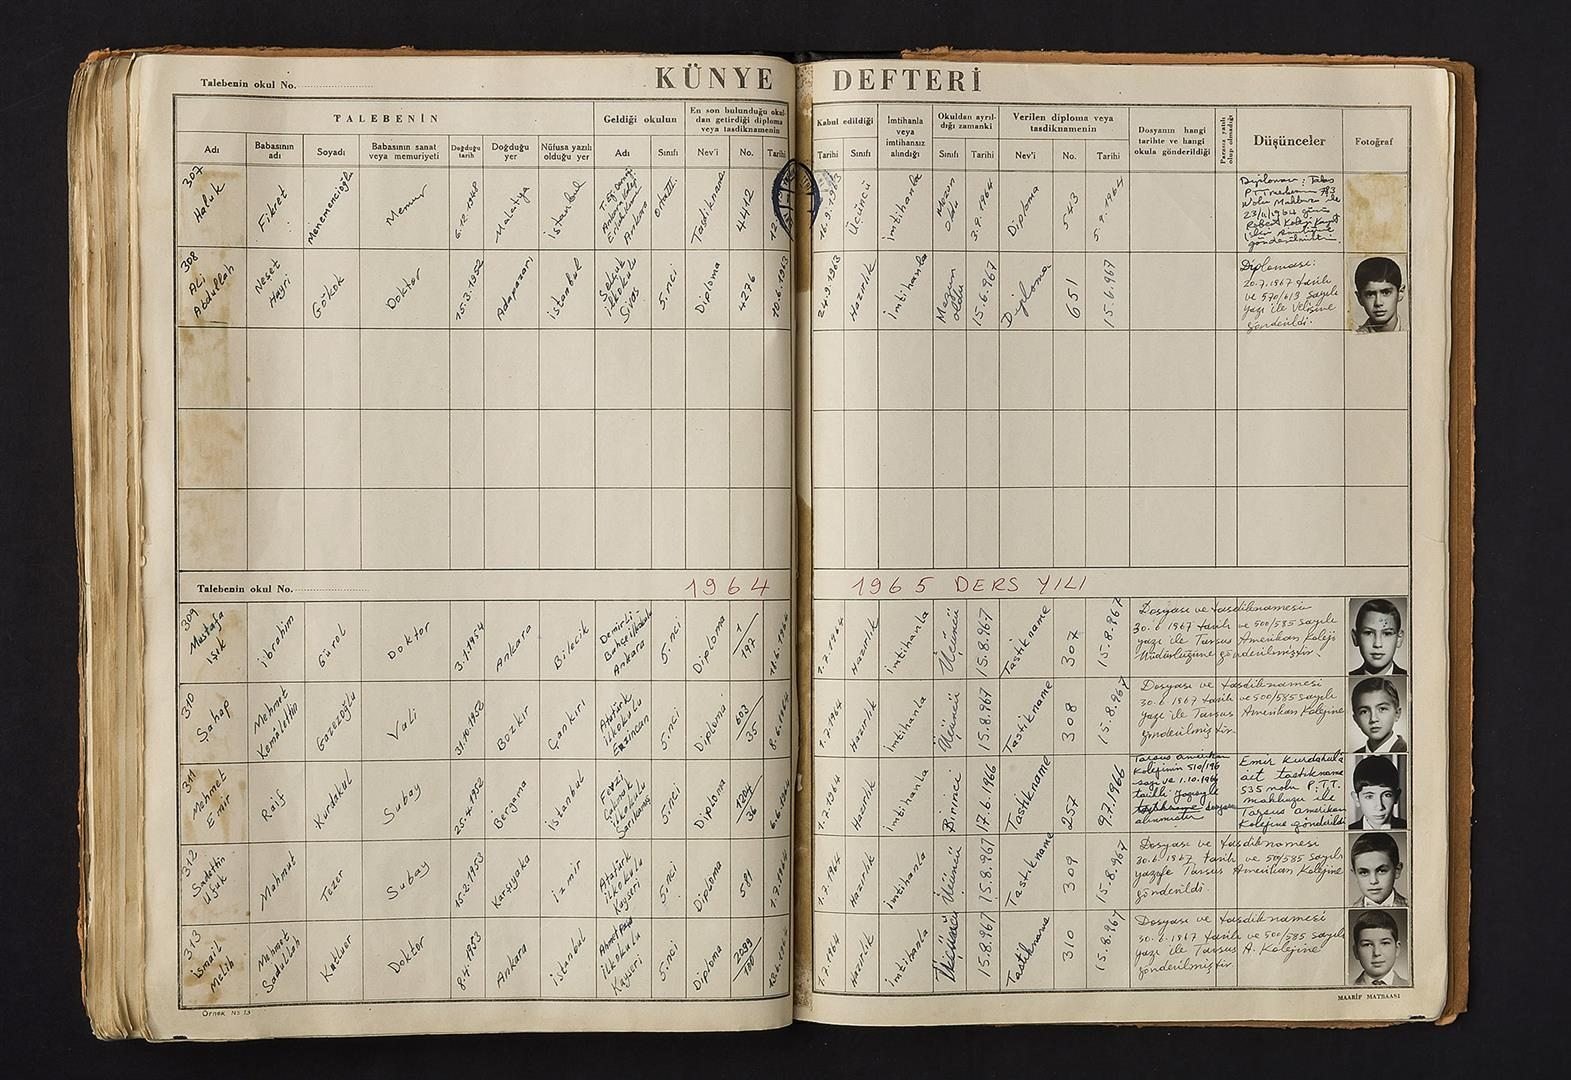 Talebenin okul No.
KÜNYE DEFTERİ
TALEBENİN
Geldiği okulun
En son bulunduğu okul-
dan getirdiği diploma
veya tasdiknamenin
Kabul edildiği
İmtihanla
veya
imtihansız
alındığı
Okuldan ayrıl-
dığı zamanki
Verilen diploma veya
tasdiknamenin
Dosyanın hangi
tarihte ve hangi
okula gönderildiği
Parasız yatılı
olup olmadığı
Düşünceler
Fotoğraf
Adı
Babasının
adı
Soyadı
Babasının sanat
veya memuriyeti
Doğduğu
tarih
Doğduğu
yer
Nüfusa yazılı
olduğu yer
Adı
Sınıfı
Nev'i
No.
Tarihi
Tarihi
Sınıfı
Sınıfı
Tarihi
Nev'i
No.
Tarihi
307
Haluk
Fikret
Menemencioğlu
Memur
6.12.1948
Malatya
İstanbul
Ankara
Tasdikname
4412
16.9.1963
Üçüncü
İmtihanla
Mezun
oldu
3.9.1964
Diploma
543
5.9.1964
Diploması: Talas
P.T.T. 783
Nolu Makbuzu ile
23/11/1964 günü
Robert Koleji
gönderilmiştir.
308
Ali
Abdullah
Neşet
Hayri
Gökok
Doktor
15.3.1952
Adapazarı
İstanbul
Selçuk
ilkokulu
Sivas
5.nci
Diploma
4276
10.6.1963
24.9.1963
Hazırlık
İmtihanla
Mezun
oldu
15.6.967
Diploma
651
15.6.967
Diploması:
20.7.1967 tarih
ve 570/613 sayılı
yazı ile Velisine
gönderildi.
Talebenin okul No.
1964 1965 DERS YILI
309
Mustafa
Işık
İbrahim
Gürol
Doktor
3.1.1954
Ankara
Bilecik
Demirli-
Bahçe ilkokulu
Ankara
5.nci
Diploma
1
197
11.6.1964
1.7.1964
Hazırlık
İmtihanla
Üçüncü
15.8.967
Tastikname
307
15.8.967
Dosyası ve tasdiknamesi
30.6.1967 tarih ve 500/585 sayılı
yazı ile Tarsus Amerikan Koleji
Müdürlüğüne gönderilmiştir.
310
Şahap
Mehmet
Kemalettin
Gazezoğlu
Vali
31.10.1952
Bozkır
Çankırı
Atatürk
ilkokulu
Erzincan
5.nci
Diploma
603
35
8.6.1964
1.7.1964
Hazırlık
İmtihanla
Üçüncü
15.8.967
Tastikname
308
15.8.967
Dosyası ve tasdiknamesi
30.6.1967 tarih ve 500/585 sayılı
yazı ile Tarsus Amerikan Kolejine
gönderilmiştir.
311
Mehmet
Emir
Raif
Kurdakul
Subay
25.4.1952
Bergama
İstanbul
Gazi
Çakmak
ilkokulu
Sarıkamış
5.nci
Diploma
1204
36
6.6.1964
1.7.1964
Hazırlık
İmtihanla
Birinci
17.6.1966
Tastikname
257
9.7.1966
Tarsus amerikan
Kolejinin 510/196
sayı ve 1.10.1966
tarihli yazısıyle
tastikname dosyası
alınmıştır
Emir Kurdakul'a
ait tastikname
535 nolu P.T.T.
makbuzu ile
Tarsus amerikan
Kolejine gönderildi
312
Sadettin
Ufuk
Mahmut
Tezer
Subay
15.2.1953
Karşıyaka
İzmir
Atatürk
ilkokulu
Kayseri
5.nci
Diploma
581
1.7.1964
1.7.1964
Hazırlık
İmtihanla
Üçüncü
15.8.967
Tastikname
309
15.8.967
Dosyası ve tasdiknamesi
30.6.1967 tarih ve 500/585 sayılı
yazıyle Tarsus Amerikan Kolejine
gönderildi.
313
İsmail
Melih
Mehmet
Sadullah
Katlıer
Doktor
8.4.1953
Ankara
İstanbul
Ahmet Paşa
ilkokulu
Kayseri
5.nci
Diploma
2099
100
1.7.1964
Hazırlık
İmtihanla
Üçüncü
15.8.967
Tastikname
310
15.8.967
Dosyası ve tasdiknamesi
30.6.1967 tarih ve 500/585 sayılı
yazı ile Tarsus A. Kolejine
gönderilmiştir.
Örnek No 13
MAARİF MATBAASI